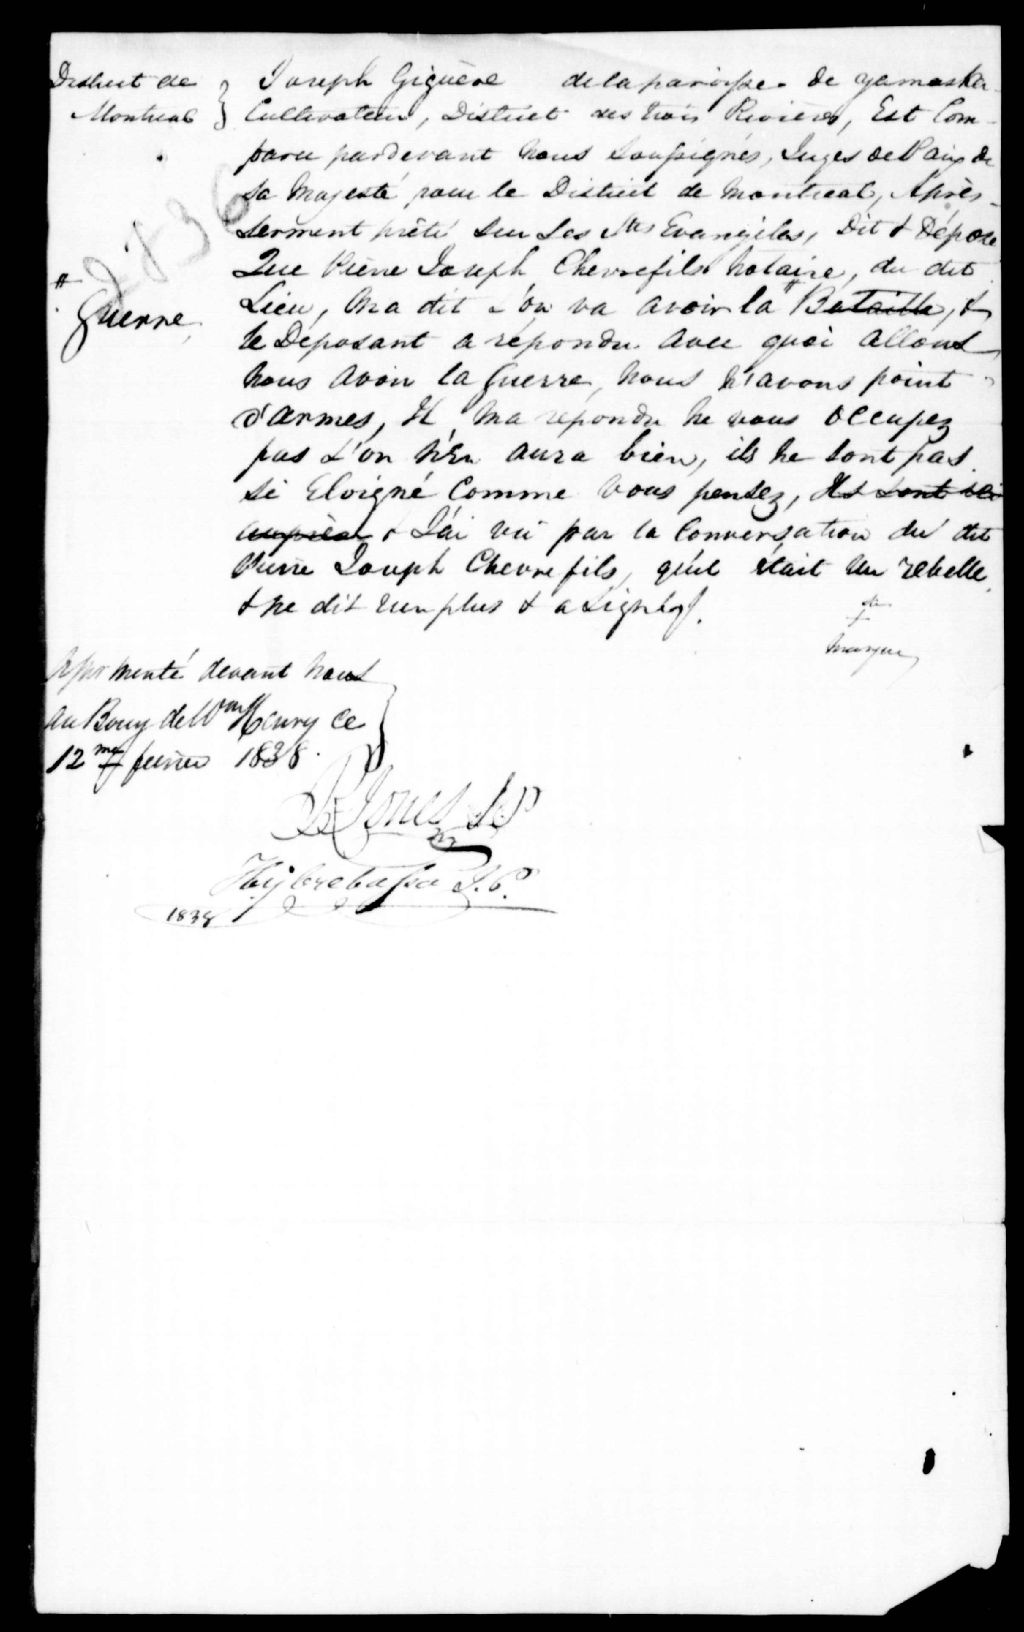 District de
Montreal
Joseph Giguère de la paroisse de yamaska
Cultivateur, District des trois Rivières, Est Com-
paru pardevant nous Soussignés, Juges de Paix de
Sa Majesté pour le District de Montreal, Après
Serment prêté Sur Les Sts Evangiles, Dit & Dépose
Que Pierre Joseph Chevrefils Notaire, du dit
"
Guerre
Lieu, Ma dit L'on va avoir la " Bataille, &
le Deposant a répondu avec quoi allons
nous avoir la Guerre, nous n'avons point
d'armes, Il ma répondu ne vous occupez
pas L'on n'En aura bien, ils ne sont pas
Si Eloigné Comme Vous pensez, Ils sont
& J'ai vu par la Conversation du dit
Pierre Joseph Chevrefils, qu'il était Un rebelle
& ne dit rien plus & a Signé
sa
+
marque
Assermenté devant nous
au Bourg de Wm Henry ce
12me fevrier 1838
R Jones J.P
J.P.
1838
2836